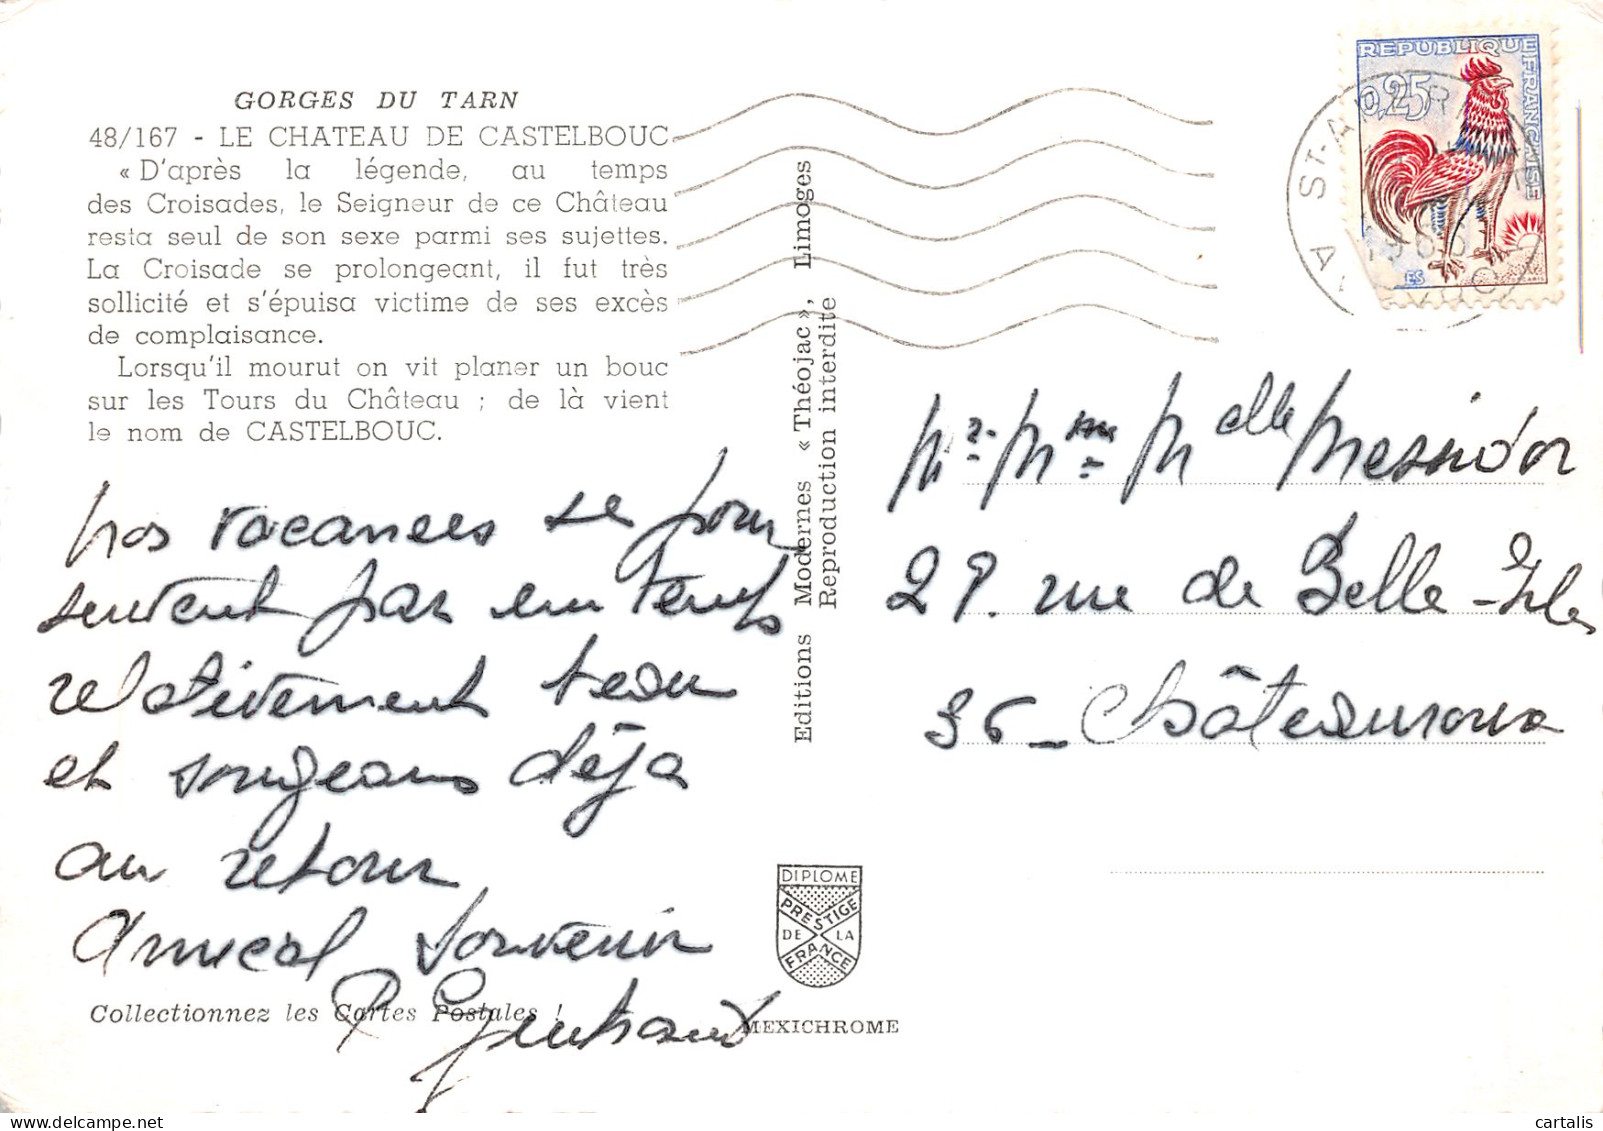 GORGES DU TARN
48/167 - LE CHATEAU DE CASTELBOUC
« D'après la légende, au temps
des Croisades, le Seigneur de ce Château
resta seul de son sexe parmi ses sujettes.
La Croisade se prolongeant, il fut très
sollicité et s'épuisa victime de ses excès
de complaisance.
Lorsqu'il mourut on vit planer un bouc
sur les Tours du Château ; de là vient
le nom de CASTELBOUC.
nos vacances se pour
suivent par un temps
relativement beau
et songeons déja
au retour
Amical souvenir
Collectionnez les Cartes Postales !
Editions Modernes « Théojac », Limoges
Reproduction interdite
DIPLOME
PRESTIGE
DE LA
FRANCE
MEXICHROME
REPUBLIQUE
FRANÇAISE
0,25
ST-A
Mr. Mme Melle Messidor
29. rue de Belle-Isle
36_ Châteauroux
cartalis